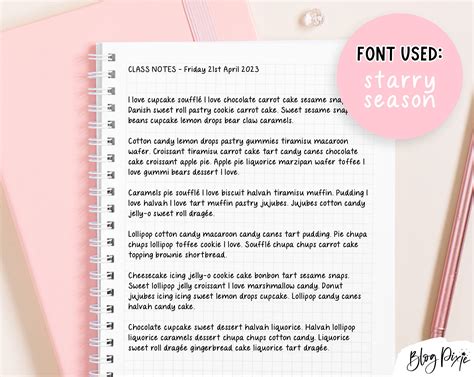 FONT USED:
starry
season
CLASS NOTES - Friday 21st April 2023
I love cupcake soufflé I love chocolate carrot cake sesame snaps
Danish sweet roll pastry cookie carrot cake. Sweet sesame snap
beans cupcake lemon drops bear claw caramels.
Cotton candy lemon drops pastry gummies tiramisu macaroon
wafer. Croissant tiramisu carrot cake tart candy canes chocolate
cake croissant apple pie. Apple pie liquorice marzipan wafer toffee I
love gummi bears dessert I love.
Caramels pie soufflé I love biscuit halvah tiramisu muffin. Pudding I
love halvah I love tart muffin pastry jujubes. Jujubes cotton candy
jelly-o sweet roll dragée.
Lollipop cotton candy macaroon candy canes tart pudding. Pie chupa
chups lollipop toffee cookie I love. Soufflé chupa chups carrot cake
topping brownie shortbread.
Cheesecake icing jelly-o cookie cake bonbon tart sesame snaps.
Sweet lollipop jelly croissant I love marshmallow candy. Donut
jujubes icing icing sweet lemon drops cupcake. Lollipop candy canes
halvah candy cake.
Chocolate cupcake dessert halvah liquorice. Halvah lollipop
liquorice caramels dessert chupa chups cotton candy. Liquorice
sweet roll dragée gingerbread cake liquorice tart dragée.
Blog Pixie